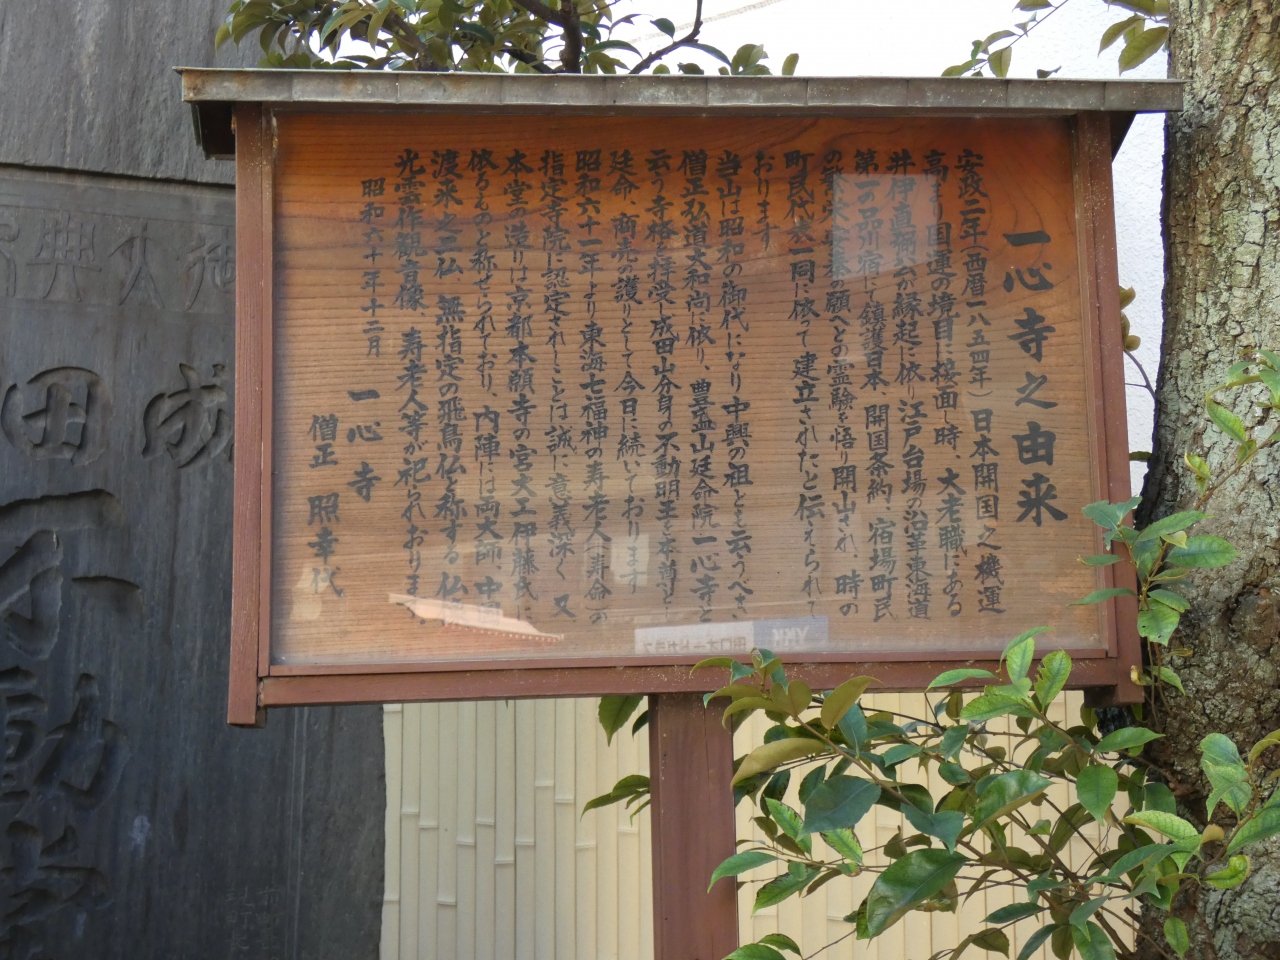 一心寺之由来
安政二年(西暦一八五四年)日本開国之機運
高まり国運の境目に接面し時、大老職にある
井伊直弼公が縁起に依り江戸台場の沿革東海道
第一の品川宿にて鎮護日本、開国条約、宿場町民
の願との霊験を悟り開山され、時の
町民代表一同に依って建立されたと伝えられて
おります
当山は昭和の御代になり中興の祖とも云うべき
僧正弘道大和尚に依り、豊盛山延命院一心寺と
云う寺格を拝受し成田山分身の不動明王を本尊と
延命、商売の護りとして今日に続いております
昭和六十一年より東海七福神の寿老人(寿命)の
指定寺院に認定されしことは誠に意義深く又
本堂の造りは京都本願寺の宮大工伊藤氏に
依るものと称せられており、内陣には両大師、中国
渡来之三仏、無指定の飛鳥仏と称する仏
光雲作観音像、寿老人等が祀られております
昭和六十年十二月
一心寺
僧正 照幸代
成田
不動